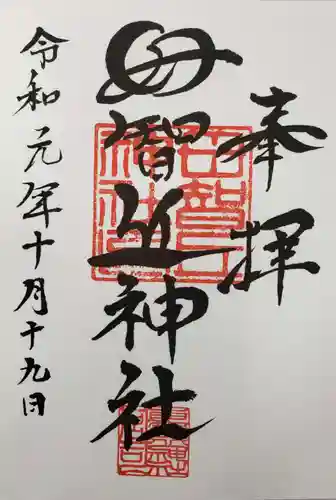 奉拝
母智丘神社
令和元年十月十九日